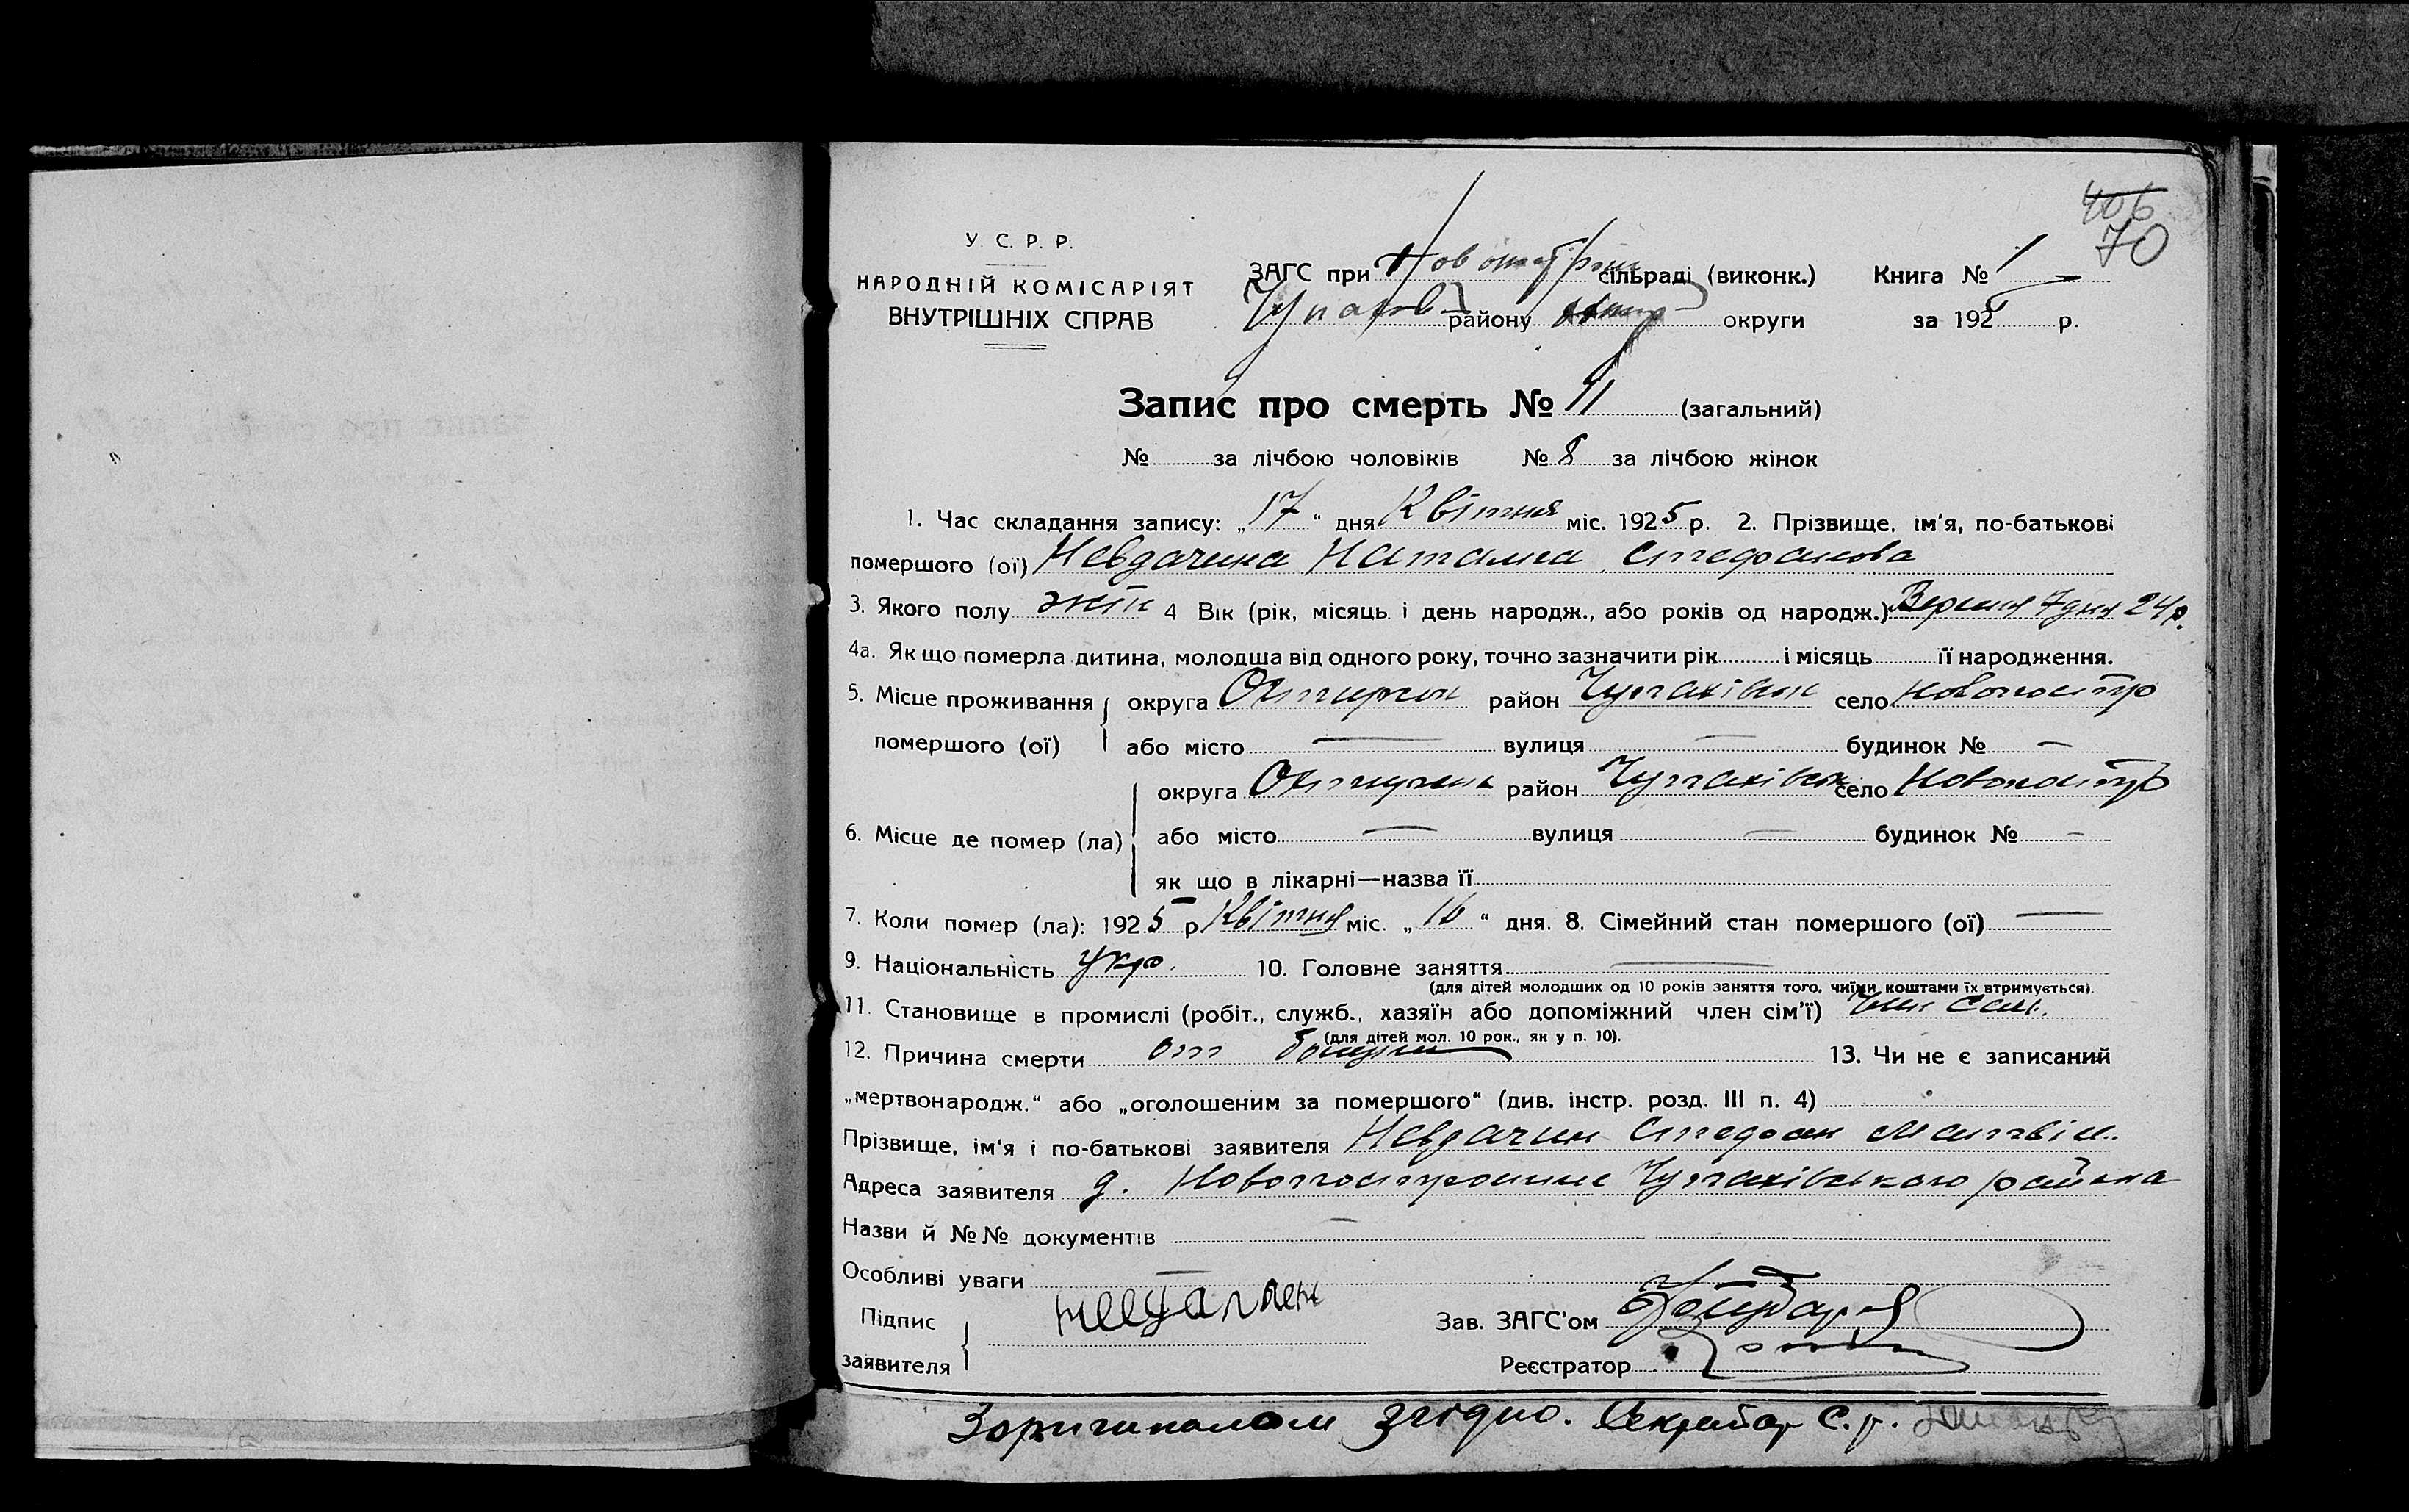 406
70
У. С. Р. Р.
НАРОДНІЙ КОМІСАРІЯТ
ВНУТРІШНІХ СПРАВ
ЗАГС при сільраді (виконк.) Книга № 1
району округи за 1925 р.
Запис про смерть № 11 (загальний)
№ за лічбою чоловіків № 8 за лічбою жінок
1. Час складання запису: „17“ дня Квітня міс. 1925 р. 2. Прізвище, ім'я, по-батькові
помершого (ої) Невдачина Наталія Стефанова
3. Якого полу жін 4 Вік (рік, місяць і день народж., або років од народж.) Вересня 7 дня 24 р.
4а. Як що померла дитина, молодша від одного року, точно зазначити рік і місяць її народження.
5. Місце проживання округа район Чупахівськ село Новопостр
помершого (ої) або місто — вулиця — будинок № —
округа район Чупахівськ село Новопостр
6. Місце де помер (ла) або місто — вулиця — будинок № —
як що в лікарні—назва її
7. Коли помер (ла): 1925 р Квітня міс. „16“ дня. 8. Сімейний стан помершого (ої) —
9. Національність укр. 10. Головне заняття —
(для дітей молодших од 10 років заняття того, чиїми коштами їх втримується).
11. Становище в промислі (робіт., служб., хазяїн або допоміжний член сім'ї) член сем.
(для дітей мол. 10 рок., як у п. 10).
12. Причина смерти от 13. Чи не є записаний
„мертвонародж.“ або „оголошеним за помершого“ (див. інстр. розд. III п. 4)
Прізвище, ім'я і по-батькові заявителя Невдачин Стефан Матвій.
Адреса заявителя д. Новопостроенне Чупахівського района
Назви й №№ документів —
Особливі уваги —
Підпис
заявителя
Зав. ЗАГС'ом
Реєстратор
Зоригиналом згідно. Секретар С.р.